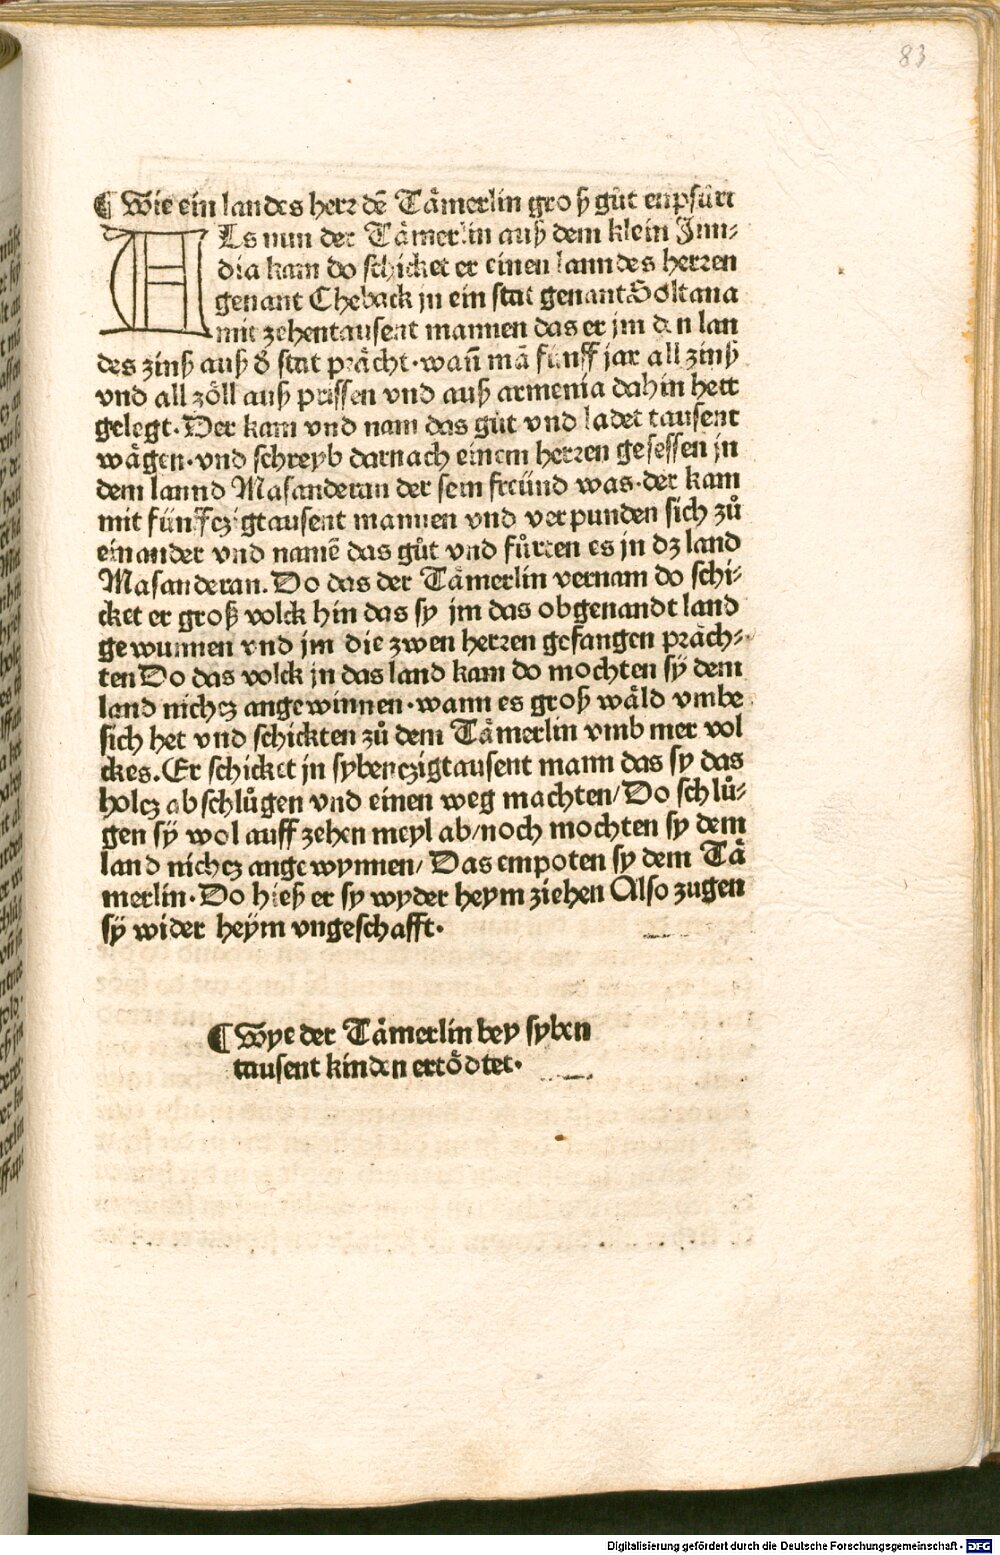 83
¶ Wie ein landes herr dē Tämerlin groß gůt enpfůrt
Als nun der Tämerlin auß dem klein Jnn-
dia kam do schicket er einen lanndes herren
genant Cheback jn ein stat genant Soltana
mit zehentausent mannen das er jm den lan
des zinß auß d̕ stat prächt·wañ mā fünff jar all zinß
vnd all zöll auß prissen vnd auß armenia dahin hett
gelegt·Der kam vnd nam das gůt vnd ladet tausent
wägen·vnd schreyb darnach einem herren gesessen jn
dem lannd Masanderan der sein freünd was·der kam
mit fünffczigtausent mannen vnd verpunden sich zů
einander vnd namē das gůt vnd fůrten es jn dz land
Masanderan. Do das der Tämerlin vernam do schi-
cket er groß volck hin das sy jm das obgenandt land
gewunnen vnd jm die zwen herren gefangen präch-
ten Do das volck jn das land kam do mochten sÿ dem
land nichcz angewinnen·wann es groß wäld vmbe
sich het vnd schickten zů dem Tämerlin vmb mer vol
ckes. Er schicket jn sybenczigtausent mann das sy das
holcz abschlůgen vnd einen weg machten/ Do schlů-
gen sÿ wol auff zehen meyl ab/noch mochten sy dem
land nichcz angewynnen/ Das empoten sy dem Tä
merlin·Do hieß er sy wyder heym ziehen Also zugen
sÿ wider heÿm vngeschafft·
¶ Wye der Tämerlin bey syben
tausent kinden ertödtet·
Digitalisierung gefördert durch die Deutsche Forschungsgemeinschaft - DFG